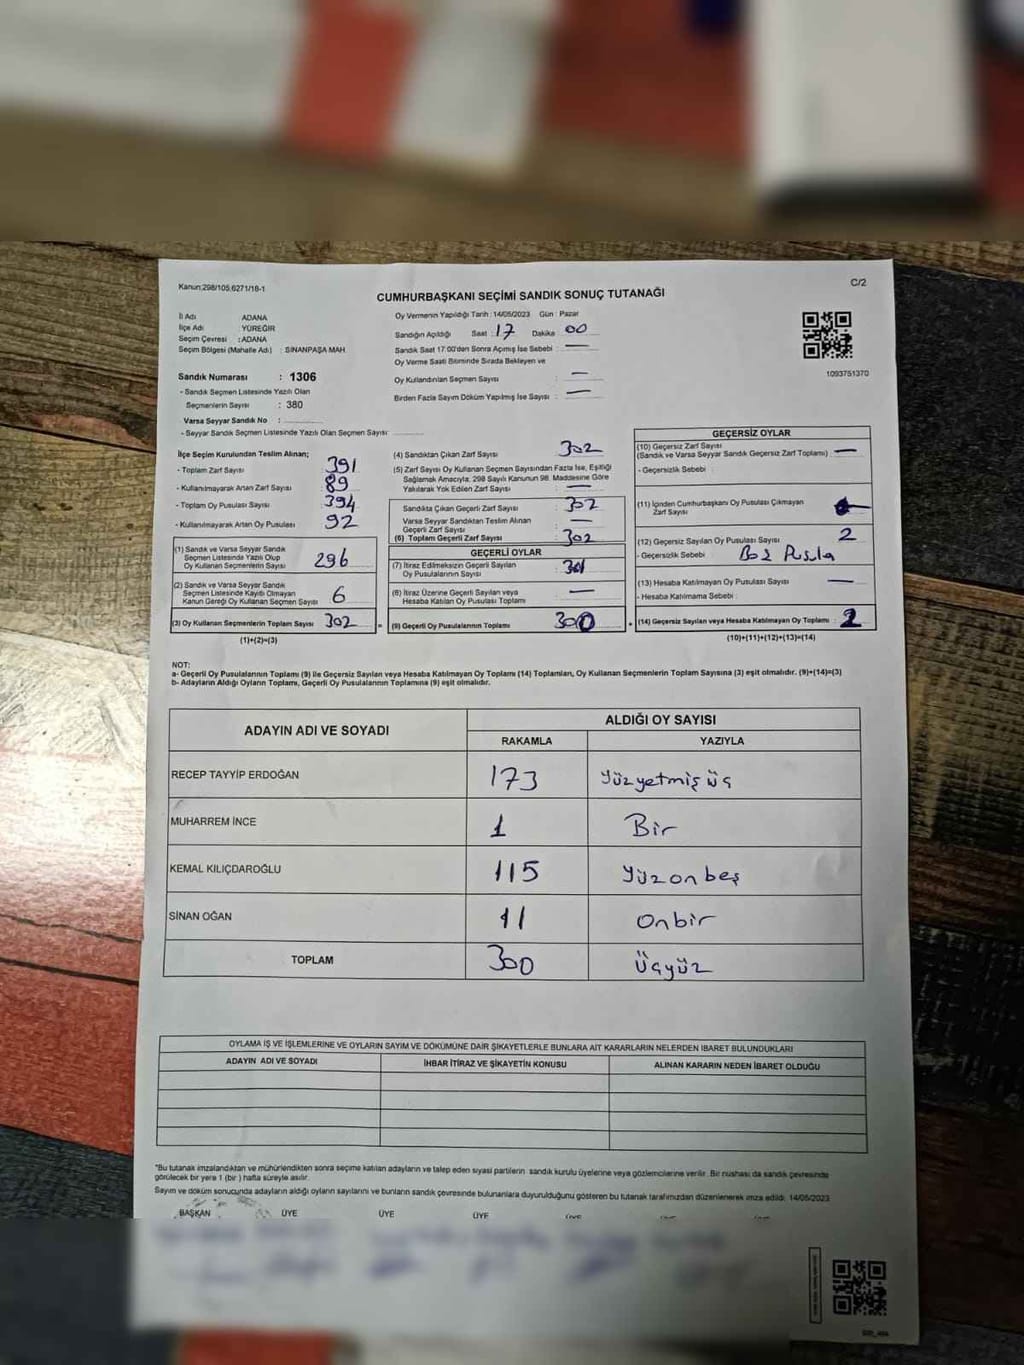 Kanun:298/105,6271/18-1
C/2
CUMHURBAŞKANI SEÇİMİ SANDIK SONUÇ TUTANAĞI
İl Adı ADANA
İlçe Adı : YÜREĞİR
Seçim Çevresi : ADANA
Seçim Bölgesi (Mahalle Adı) : SİNANPAŞA MAH.
Oy Vermenin Yapıldığı Tarih : 14/05/2023 Gün : Pazar
Sandığın Açıldığı Saat : 17 Dakika 00
Sandık Saat 17:00'den Sonra Açımış İse Sebebi : —
Oy Verme Saati Bitiminde Sırada Bekleyen ve
Oy Kullandırılan Seçmen Sayısı : —
Birden Fazla Sayım Döküm Yapılmış İse Sayısı : —
1093751370
Sandık Numarası : 1306
- Sandık Seçmen Listesinde Yazılı Olan
Seçmenlerin Sayısı : 380
Varsa Seyyar Sandık No :
- Seyyar Sandık Seçmen Listesinde Yazılı Olan Seçmen Sayısı:
İlçe Seçim Kurulundan Teslim Alınan;
- Toplam Zarf Sayısı 391
- Kullanılmayarak Artan Zarf Sayısı 89
- Toplam Oy Pusulası Sayısı 394
- Kullanılmayarak Artan Oy Pusulası 92
(1) Sandık ve Varsa Seyyar Sandık
Seçmen Listesinde Yazılı Olup
Oy Kullanan Seçmenlerin Sayısı 296
(2) Sandık ve Varsa Seyyar Sandık
Seçmen Listesinde Kayıtlı Olmayan
Kanun Gereği Oy Kullanan Seçmen Sayısı 6
(3) Oy Kullanan Seçmenlerin Toplam Sayısı 302 =
(1)+(2)=(3)
(4) Sandıktan Çıkan Zarf Sayısı : 302
(5) Zarf Sayısı Oy Kullanan Seçmen Sayısından Fazla İse, Eşitliği
Sağlamak Amacıyla; 298 Sayılı Kanunun 98. Maddesine Göre
Yakılarak Yok Edilen Zarf Sayısı : —
Sandıkta Çıkan Geçerli Zarf Sayısı : 302
Varsa Seyyar Sandıktan Teslim Alınan
Geçerli Zarf Sayısı : —
(6) Toplam Geçerli Zarf Sayısı : 302
GEÇERLİ OYLAR
(7) İtiraz Edilmeksizin Geçerli Sayılan
Oy Pusulalarının Sayısı :
(8) İtiraz Üzerine Geçerli Sayılan veya
Hesaba Katılan Oy Pusulası Toplamı : —
(9) Geçerli Oy Pusulalarının Toplamı : 300 +
GEÇERSİZ OYLAR
(10) Geçersiz Zarf Sayısı
(Sandık ve Varsa Seyyar Sandık Geçersiz Zarf Toplamı) : —
- Geçersizlik Sebebi :
(11) İçinden Cumhurbaşkanı Oy Pusulası Çıkmayan
Zarf Sayısı :
(12) Geçersiz Sayılan Oy Pusulası Sayısı : 2
- Geçersizlik Sebebi : Boş Pusula
(13) Hesaba Katılmayan Oy Pusulası Sayısı : —
- Hesaba Katılmama Sebebi :
(14) Geçersiz Sayılan veya Hesaba Katılmayan Oy Toplamı : 2
(10)+(11)+(12)+(13)=(14)
NOT:
a- Geçerli Oy Pusulalarının Toplamı (9) İle Geçersiz Sayılan veya Hesaba Katılmayan Oy Toplamı (14) Toplamları, Oy Kullanan Seçmenlerin Toplam Sayısına (3) eşit olmalıdır. (9)+(14)=(3)
b- Adayların Aldığı Oyların Toplamı, Geçerli Oy Pusulalarının Toplamına (9) eşit olmalıdır.
ADAYIN ADI VE SOYADI ALDIĞI OY SAYISI
RAKAMLA YAZIYLA
RECEP TAYYİP ERDOĞAN 173 Yüzyetmiş üç
MUHARREM İNCE 1 Bir
KEMAL KILIÇDAROĞLU 115 Yüzonbeş
SİNAN OĞAN 11 Onbir
TOPLAM 300 Üçyüz
OYLAMA İŞ VE İŞLEMLERİNE VE OYLARIN SAYIM VE DÖKÜMÜNE DAİR ŞİKAYETLERLE BUNLARA AİT KARARLARIN NELERDEN İBARET BULUNDUKLARI
ADAYIN ADI VE SOYADI İHBAR İTİRAZ VE ŞİKAYETİN KONUSU ALINAN KARARIN NEDEN İBARET OLDUĞU
"Bu tutanak imzalandıktan ve mühürlendikten sonra seçime katılan adayların ve talep eden siyasi partilerin sandık kurulu üyelerine veya gözlemcilerine verilir. Bir nüshası da sandık çevresinde
görülecek bir yere 1 (bir ) hafta süreyle asılır.
Sayım ve döküm sonucunda adayların aldığı oyların sayılarını ve bunların sandık çevresinde bulunanlara duyurulduğunu gösteren bu tutanak tarafımızdan düzenlenerek imza edildi. 14/05/2023
BAŞKAN ÜYE ÜYE ÜYE